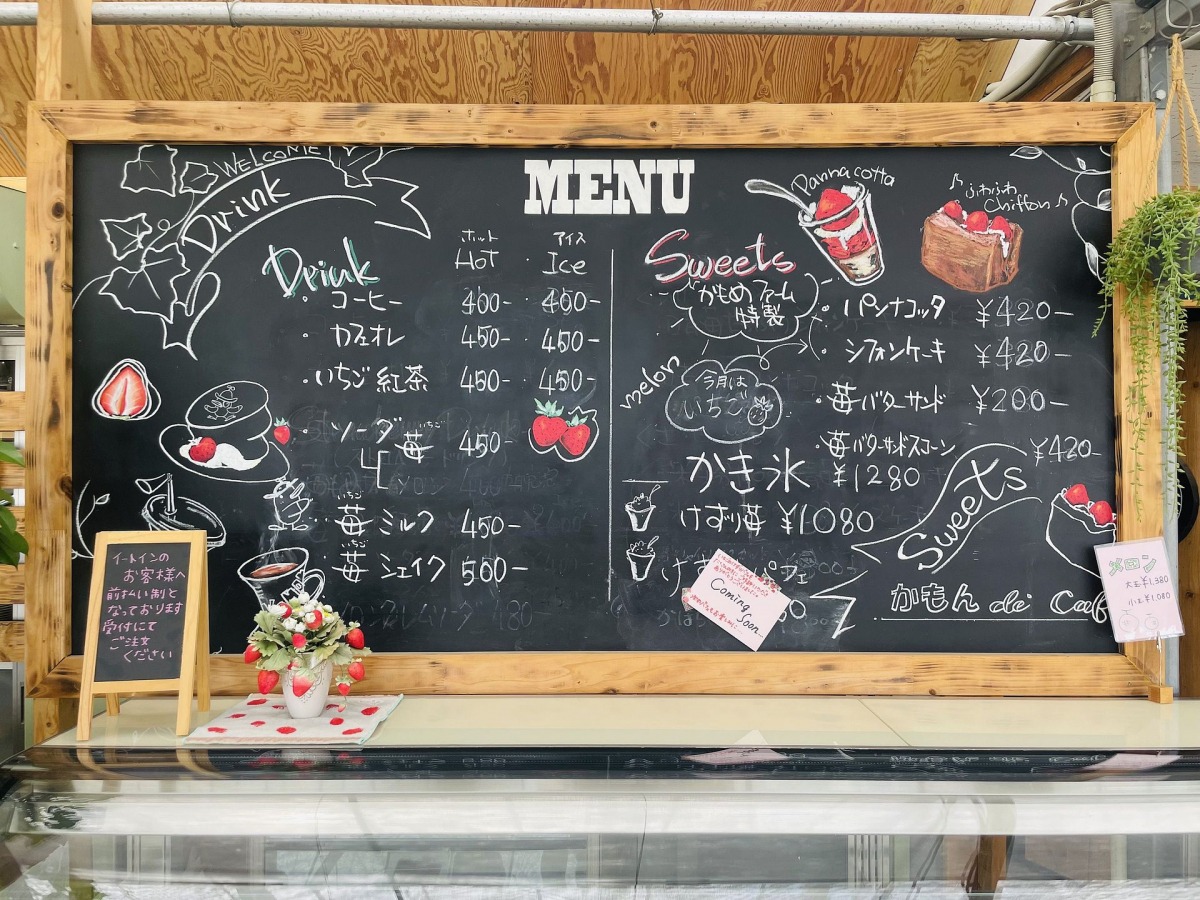 MENU
WELCOME
Drink
Drink
ホット アイス
Hot ・ Ice
・コーヒー 400- 400-
・カフェオレ 450- 450-
・いちご紅茶 450- 450-
・ソーダ苺 450-
いちご
・苺ミルク 450-
いちご
・苺シェイク 500-
いちご
Sweets
Pannacotta
ふわふわ
Chiffon♪
かもめファーム
特製
・パンナコッタ ¥420-
・シフォンケーキ ¥420-
・苺バターサンド ¥200-
・苺バターサンドスコーン ¥420-
melon
今月は
いちご
かき氷 ¥1280
けずり苺 ¥1080
けず
パフェ
Coming
Soon
Sweets
かもん de Caf
イートインの
お客様へ
前払い制と
なっております
受付にて
ご注文
ください
メロン
大玉¥1,380
小玉¥1,080